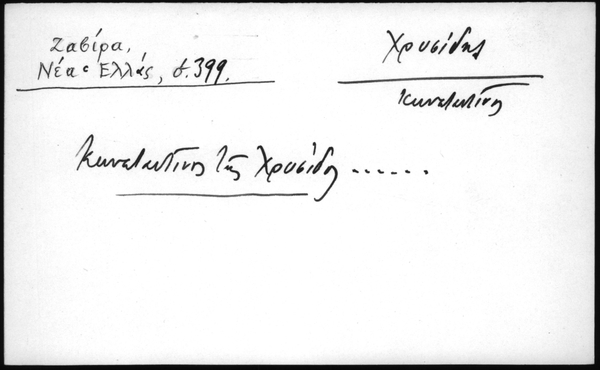 Ζαβίρα,
Νέα Ἑλλάς, σ. 399.
Χρυσίδης
Κωνσταντίνος
Κωνσταντίνος της Χρυσίδος ......